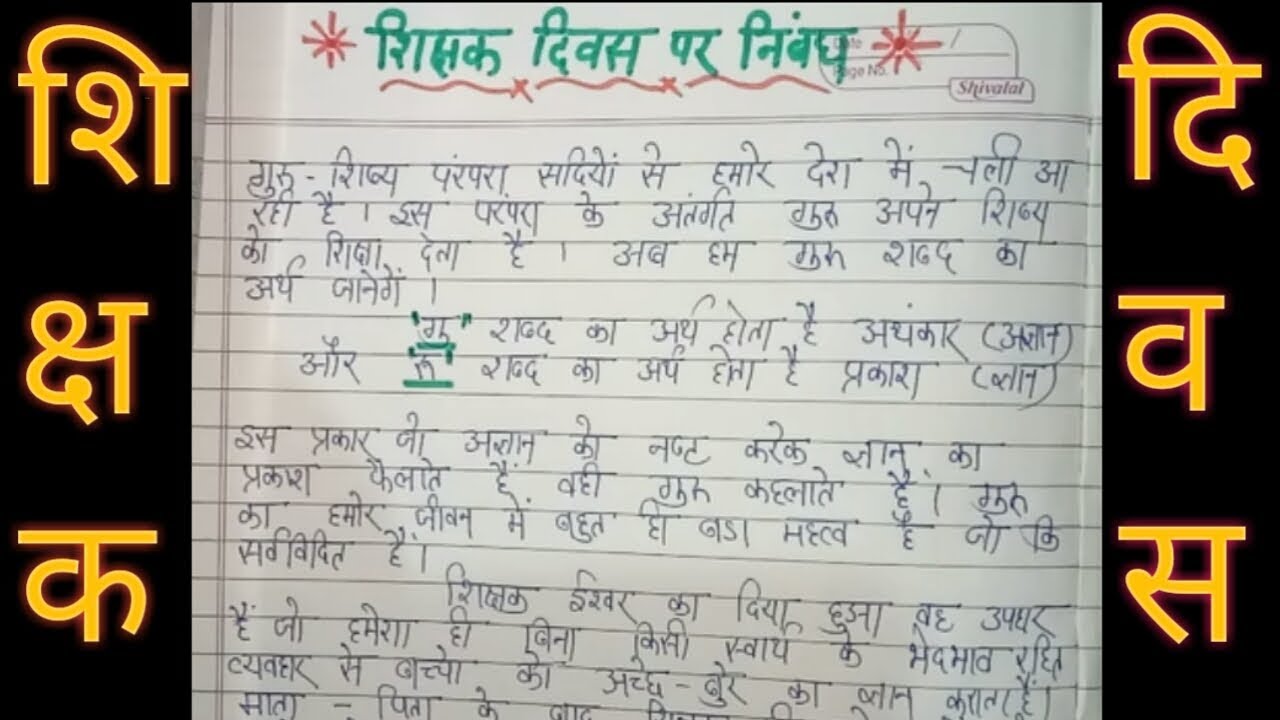 शिक्षक दिवस
शिक्षक दिवस पर निबंध
Date /
Page No.
Shivalal
गुरू - शिष्य परंपरा सदियों से हमारे देश में चली आ
रही है । इस परंपरा के अंतर्गत गुरू अपने शिष्य
को शिक्षा देता है । अब हम गुरू शब्द का
अर्थ जानेगें ।
"गु" शब्द का अर्थ होता है अधंकार (अज्ञान)
और "रू" शब्द का अर्थ होता है प्रकाश (ज्ञान)
इस प्रकार जो अज्ञान को नष्ट करके ज्ञान का
प्रकाश फैलाते हैं वही गुरू कहलाते हैं । गुरू
का हमारे जीवन में बहुत ही बडा महत्व है जो कि
सर्वविदित है ।
शिक्षक ईश्वर का दिया हुआ वह उपहार
हैं जो हमेशा ही बिना किसी स्वार्थ के भेदभाव रहित
व्यवहार से बच्चो को अच्छे - बुरे का ज्ञान कराता है।
माता - पिता के बाद